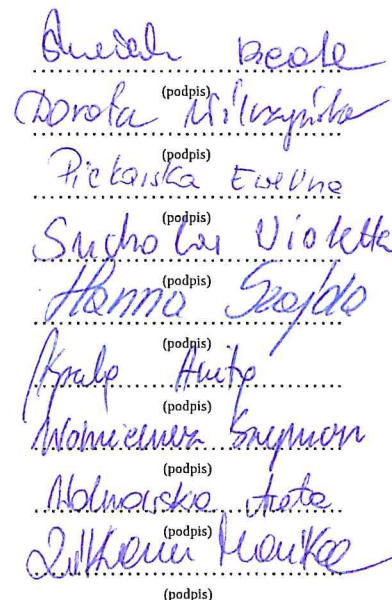 Beata
(podpis)
Dorota Wilczyńska
(podpis)
Piekarska Ewelina
(podpis)
Sucholas Violetta
(podpis)
Hanna Szajda
(podpis)
Anita
(podpis)
Szymon
(podpis)
Wolnowska Aneta
(podpis)
Monika
(podpis)